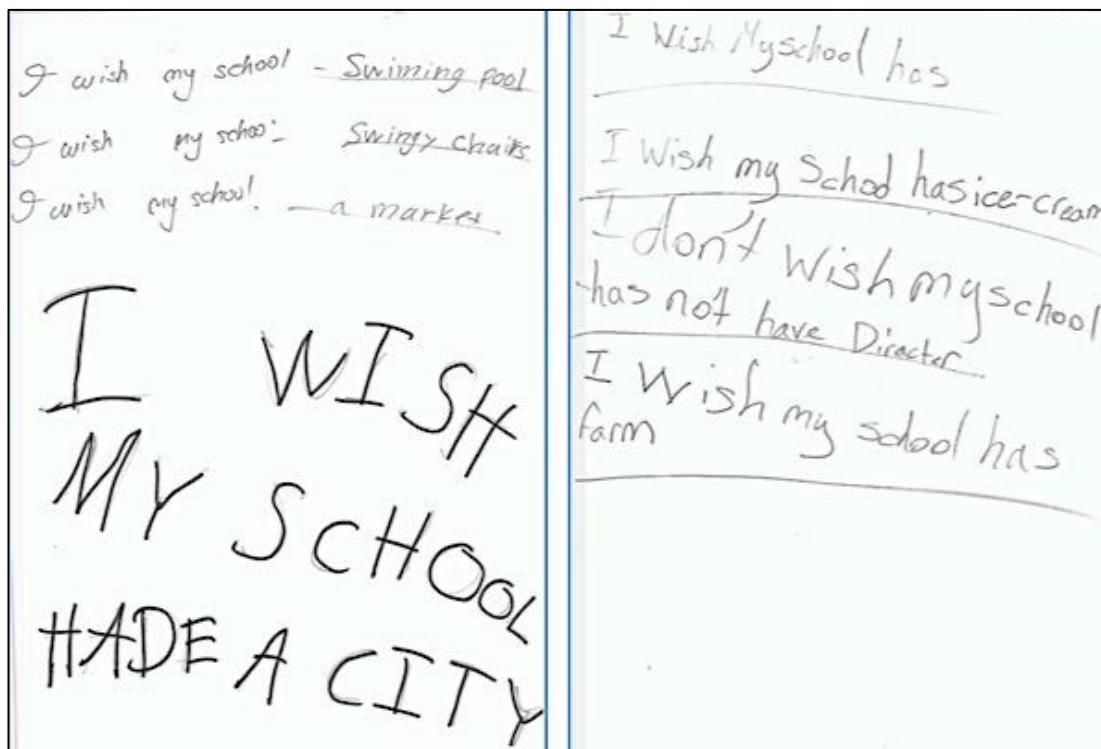 I wish my school - Swiming pool
I wish my school - Swingy chairs
I wish my school - a market
I WISH
MY SCHOOL
HADE A CITY
I Wish My school has
I Wish my School has ice-cream
I don't wish my school
has not have Diracter
I Wish my school has
farm